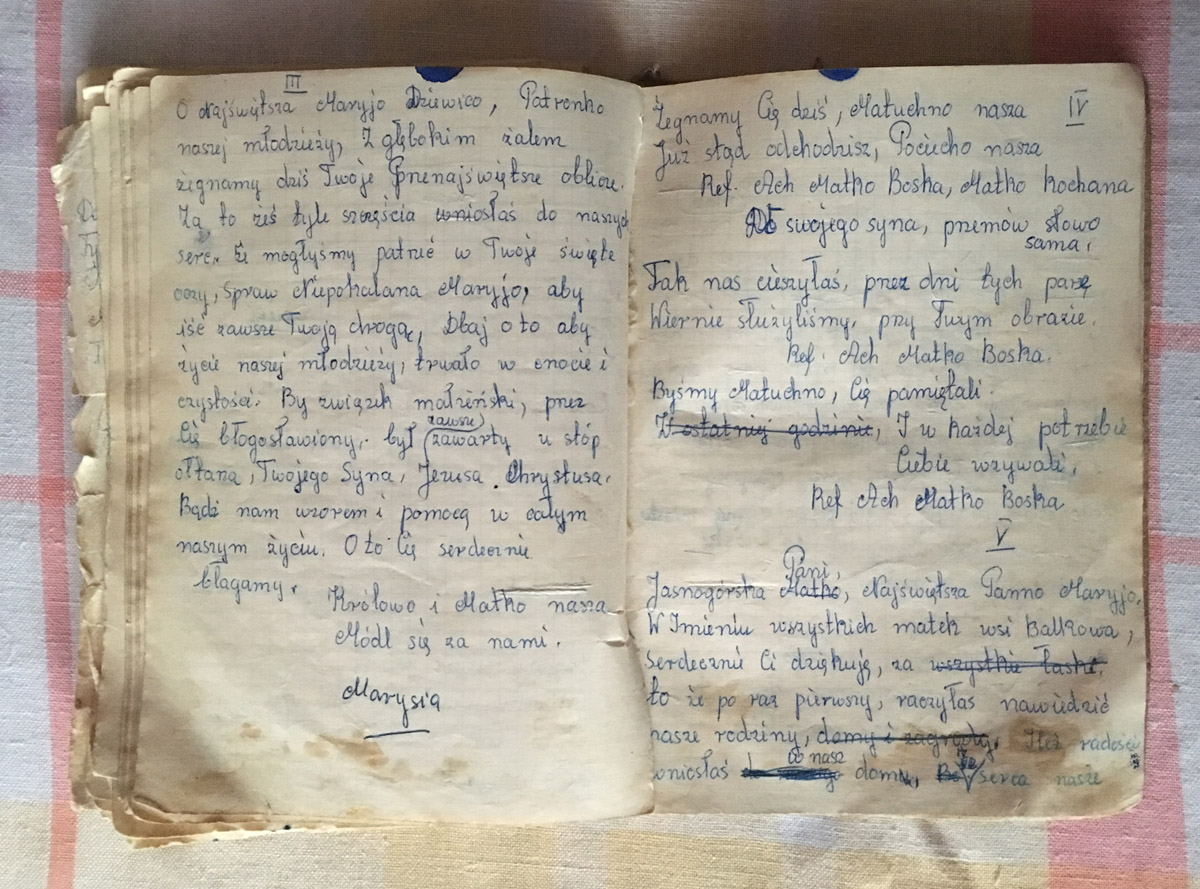 III
O Najświętsza Maryjo Dziewico, Patronko
naszej młodzieży, Z głębokim żalem
żegnamy dziś Twoje Przenajświętsze oblicze.
Za to żeś tyle szczęścia wniosłaś do naszych
serc. Że mogłyśmy patrzeć w Twoje święte
oczy, Spraw Niepokalana Maryjo, aby
iść zawsze Twoją drogą, Dbaj o to aby
życie naszej młodzieży, trwało w cnocie i
czystości. By związek małżeński, przez
Cię błogosławiony, był zawsze zawarty u stóp
ołtarza, Twojego Syna, Jezusa Chrystusa.
Bądź nam wzorem i pomocą w całym
naszym życiu. O to Cię serdecznie
błagamy.
Królowo i Matko nasza
Módl się za nami.
Marysia
IV
Żegnamy Cię dziś, Matuchno nasza
Już stąd odchodzisz, Pociecho nasza
Ref. Ach Matko Boska, Matko kochana
Do swojego syna, przemów słowo
sama,
Tak nas cieszyłaś, przez dni tych parę
Wiernie służyliśmy, przy Twym obrazie.
Ref. Ach Matko Boska.
Byśmy Matuchno, Cię pamiętali.
W ostatniej godzinie, I w każdej potrzebie
Ciebie wzywali,
Ref Ach Matko Boska
V
Pani,
Jasnogórska Matko, Najświętsza Panno Maryjo,
W Imieniu wszystkich matek wsi Bałkowa,
Serdecznie Ci dziękuję, za wszystkie łaski.
to że po raz pierwszy, raczyłaś nawiedzić
nasze rodziny, domy i zagrody. Ileż radości
wniosłaś w nasz domu, serca nasze